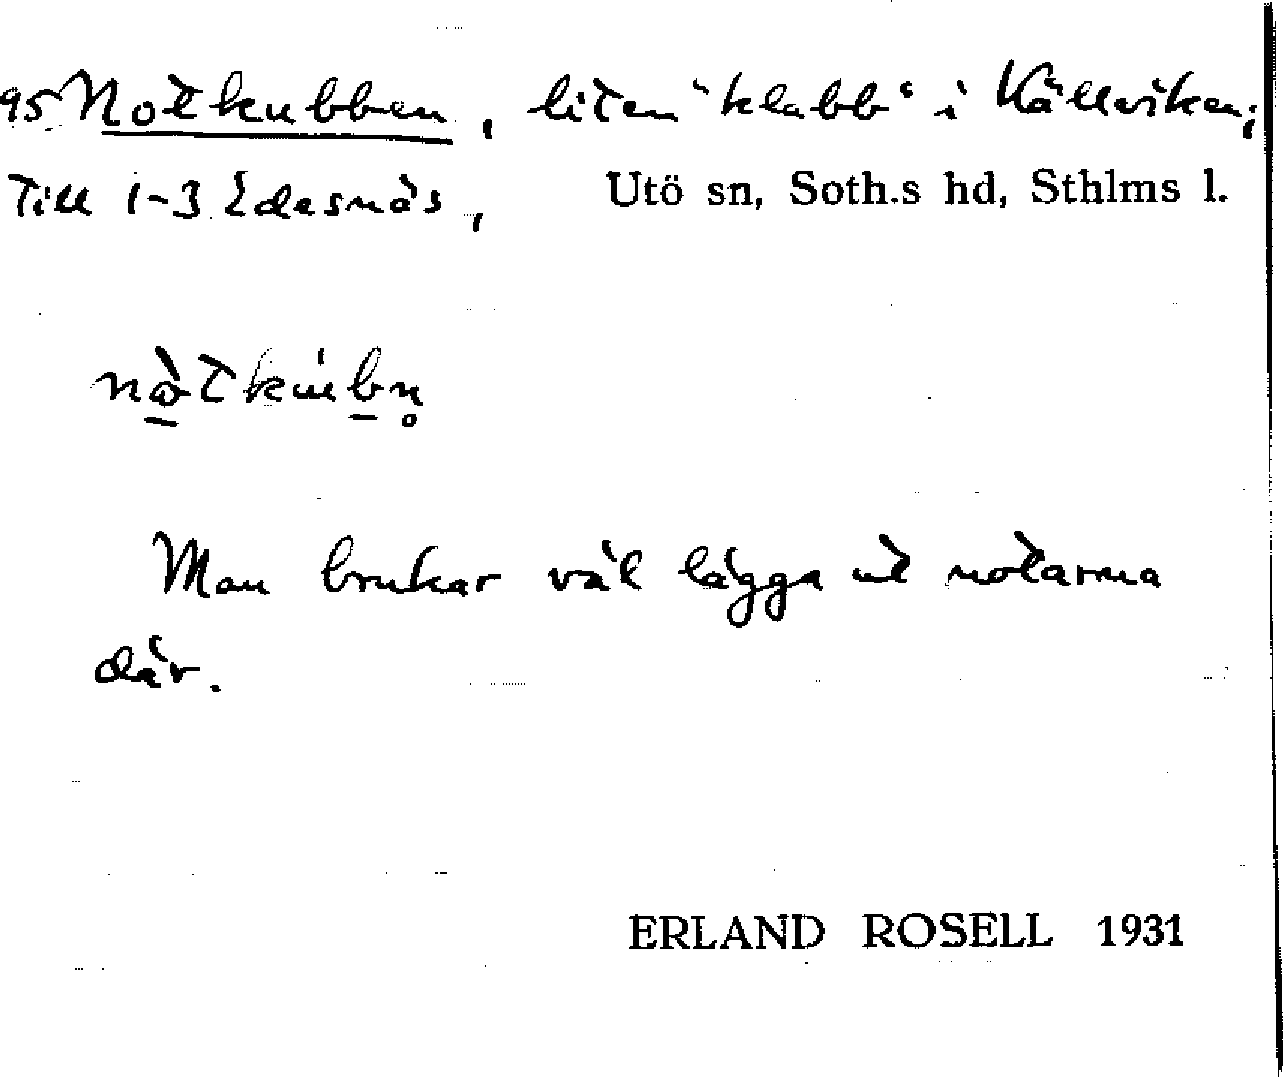 95 Notkubben, liten "klabb" i Källviken;
Till 1-3 Edesnäs, Utö sn, Soth.s hd, Sthlms l.
Man brukar väl lägga ut notarna
där.
ERLAND ROSELL 1931